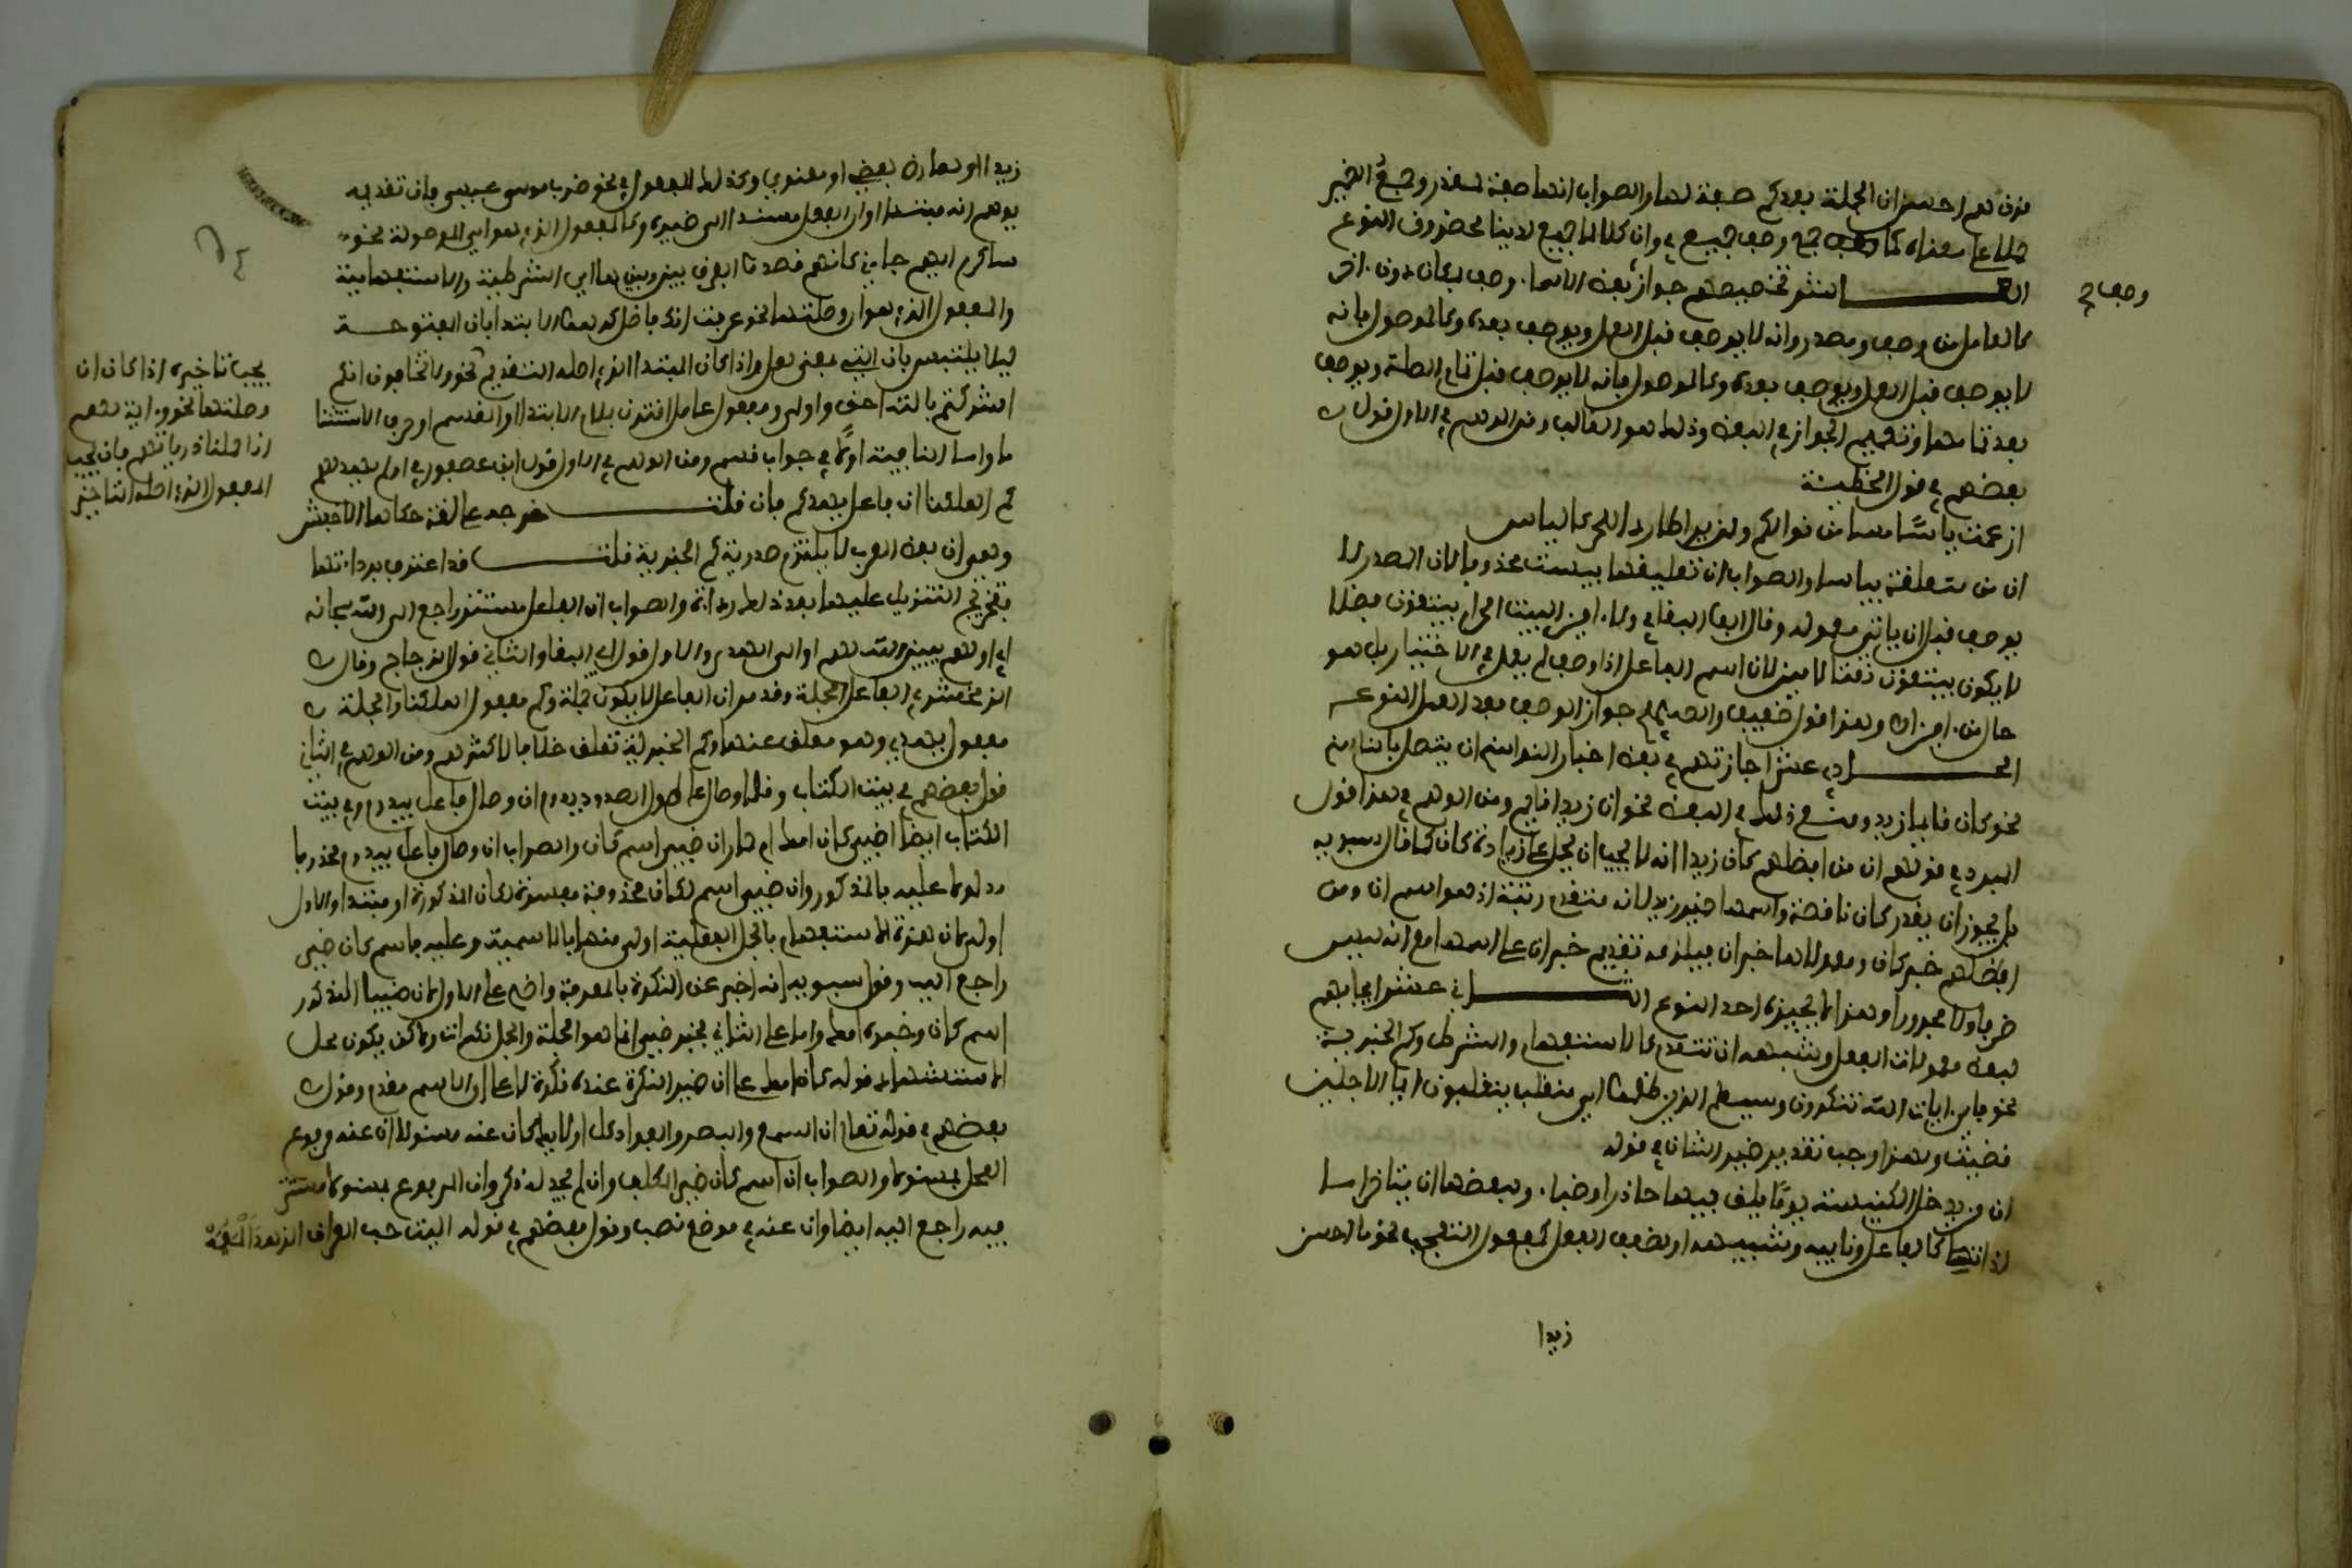 قرن هم احسن ان الجملة بعدكم صفة لها والصواب انها صفة لقرن وجمع الضمير
حملا على معناه كما وصف جميع في وان كل لما جميع لدينا محضرون النوع
وصف جـ
العـــاشر تخصيصهم جواز بعض الاسما. وصف بمكان دون اخر
كالعامل من وصف ومصدر وانه لا يوصف قبل العمل ويوصف بعده وكالموصول فانه
لا يوصف قبل العمل ويوصف بعده وكالموصول فانه لا يوصف قبل تمام الصلة ويوصف
بعد تمامها وتعميم الجواز في البعض وذلك هو الغالب ومن الوهم في الاول قول
بعضهم في قول الحطيئة
ازمعت ياسا مبينا من نوالكم ولن يرا طاردا للحر كالياس
ان من متعلقة بياسا والصواب ان تعليقها بيئست محذوفا لان المصدر لا
يوصف قبل ان ياتي معموله وقال ابو البقا في ولا. امين البيت الحرام يبتغون فضلا
لا يكون يبتغون نعتا لامين لان اسم الفاعل اذا وصف لم يعمل في الاختيار بل هو
حال من. امين اه وهذا قول ضعيف والصحيح جواز الوصف بعد العمل النوع
الحـــادي عشر اجازتهم في بعض اخبار النواسخ ان يتصل بالناسخ
نحو كان قايما زيد ومنع ذلك في البعض نحو ان زيدا قايم ومن الوهم في هذا قول
المبرد في قولهم ان من افضلهم كان زيدا انه لا يجب ان يحمل على زيادة كان كما قال سبويه
بل يجوز ان يقدر كان ناقصة واسمها ضمير زيد لانه متقدم رتبة اذ هو اسم ان ومن
افضلهم خبر كان ومعمولاها خبر ان فيلزمه تقديم خبر ان على اسمها مع انه ليس
ضرفا ولا مجرورا وهذا لا يجيزه احد النوع الثـــاني عشر ايجابهم
لبعض معمولات الفعل وشبهه ان تتقدم كالاستفهام والشرط وكم الخبرية
نحو فاي. ايات الله تنكرون وسيعلم الذين ظلموا اي منقلب ينقلبون ايما الاجلين
قضيت ولهذا وجب تقدير ضمير الشان في قوله
ان من يدخل الكنيسة يوما يلق فيها جاذرا وضبا. ولبعضها ان يتاخر اما
لذاته كالفاعل ونايبه وشبيهه او لضعف الفعل كمفعول التعجب نحو ما احسن
زيدا
زيدا او لعارض بعضي او معنوي وكذلك المفعول في نحو ضرب موسى عيسى فان تقديمه
يوهم انه مبتدا وان الفعل مسند الى ضميره وكالمفعول الذي هو اي الموصولة نحو
ساكرم ايهم جاني كانهم قصدوا الفرق بينها وبين اي الشرطية والاستفهامية
والمفعول الذي هو ان وصلتها نحو عرفت انك فاضل كرهوا الابتدا بان المفتوحة
ليلا يلتبس بان التي بمعنى لعل واذا كان المبتدا الذي اصله التقديم نحو ولا تخافون انكم
يجب تاخيره اذا كان ان
وصلتها نحو و. اية لهم
انا حملنا ذرياتهم فان يجب
المفعول الذي اصله التاخير
اشركتم بالله احق واولى ومعمول عامل اقترن بلام الابتدا او القسم او حرف الاستثنا
او ما النافية او لا في جواب قسم ومن الوهم في الاول قول ابن عصفور في اولم يهد لهم
كم اهلكنا ان فاعل يهد كم فان قلت ـــــ خرجه على لغة حكاها الاخفش
وهي ان بعض العرب لا يلتزم صدرية كم الخبرية قلت ـــــ قد اعترف برداءتها
فتخريج التنزيل عليها بعد ذلك رداءة والصواب ان الفاعل مستتر راجع الى الله سبحانه
اي اولم يبين الله لهم او الى الهدى والاول قول ابي البقا والثاني قول الزجاج وقال
الزمخشري الفاعل الجملة وقد مر ان الفاعل لا يكون جملة وكم مفعول اهلكنا والجملة
مفعول يهدي وهو معلق عنها وكم الخبرية تعلق خلافا لاكثرهم ومن الوهم في الثاني
قول بعضهم في بيت الكتاب وقلما وصال على طول الصدود يدوم ان وصال فاعل بيدوم وفي بيت
الكتاب ايضا اضبي كان امك ام حمار ان ضبي اسم كان والصواب ان وصال فاعل بيدوم محذوفا
مدلولا عليه بالمذكور وان ضبي اسم لكان محذوفة مفسرة لكان المذكورة او مبتدا والاول
اولى لان همزة الاستفهام بالجمل الفعلية اولى منها بالاسمية وعليه فاسم كان ضمير
راجع اليه وقول سبويه انه اخبر عن النكرة بالمعرفة واضح على الاول لان ضبيا المذكور
اسم كان وخبره امك واما على الثاني فخبر ضبي انما هو الجملة والجمل نكرات ولاكن يكون محل
الاستشهاد قوله كان امك على ان ضمير النكرة عنده نكرة لا على ان الاسم مقدم وقول
بعضهم في قوله تعالى ان السمع والبصر والفواد كل اولايك كان عنه مسئولا ان عنه مرفوع
المحل بمسئولا والصواب ان اسم كان ضمير المكلف وان لم يجر له ذكر وان المرفوع بمسئولا مستتر
فيه راجع اليه ايضا وان عنه في موضع نصب وقول بعضهم في قوله اليت حب العراق الدهر اطعمه